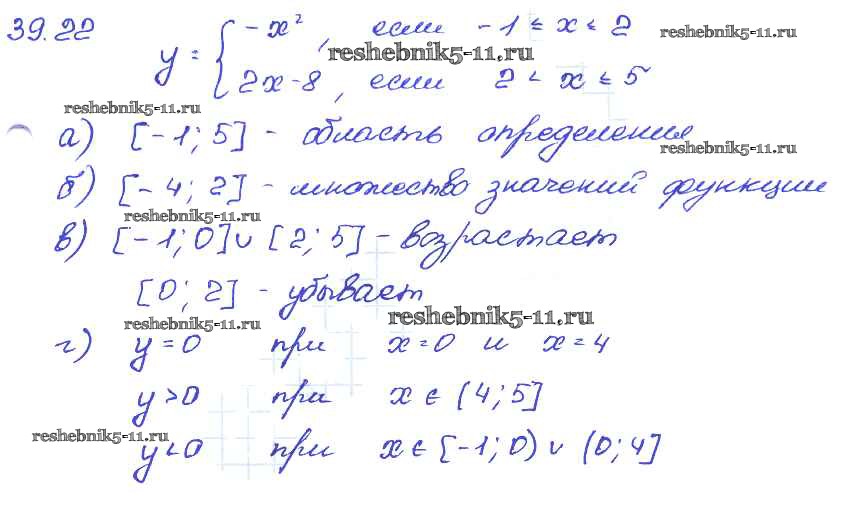 39.22
y = { -x², если -1 ≤ x ≤ 2
reshebnik5-11.ru
reshebnik5-11.ru
2x-8, если 2 < x ≤ 5
reshebnik5-11.ru
а) [-1; 5] - область определения
reshebnik5-11.ru
б) [-4; 2] - множество значений функции
reshebnik5-11.ru
в) [-1; 0] ∪ [2; 5] - возрастает
[0; 2] - убывает
reshebnik5-11.ru
reshebnik5-11.ru
г) y = 0 при x = 0 и x = 4
y > 0 при x ∈ (4; 5]
reshebnik5-11.ru
y < 0 при x ∈ [-1; 0) ∪ (0; 4]